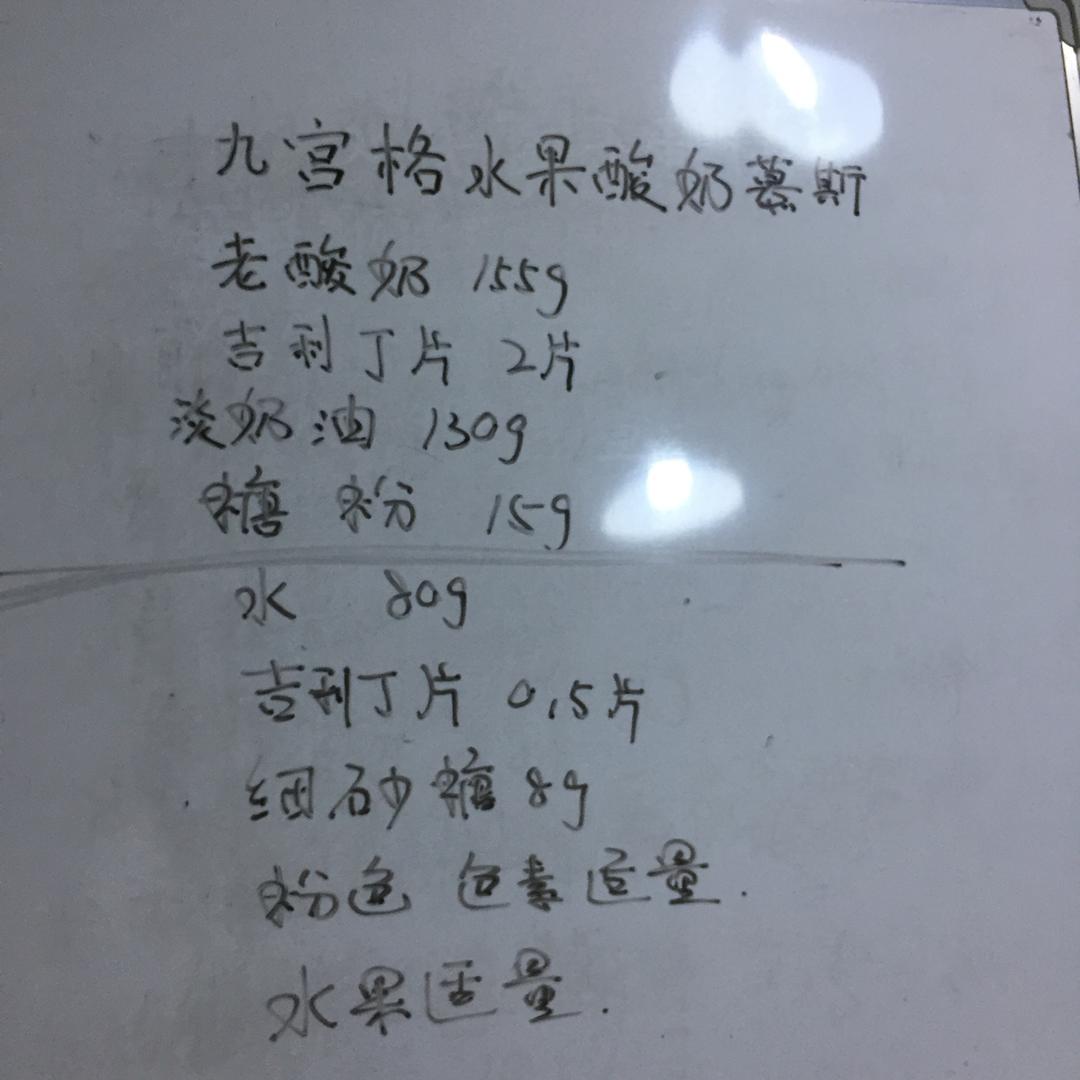 九宫格水果酸奶慕斯
老酸奶 155g
吉利丁片 2片
淡奶油 130g
糖粉 15g
水 80g
吉利丁片 0.5片
细砂糖 8g
粉色 色素适量.
水果适量.